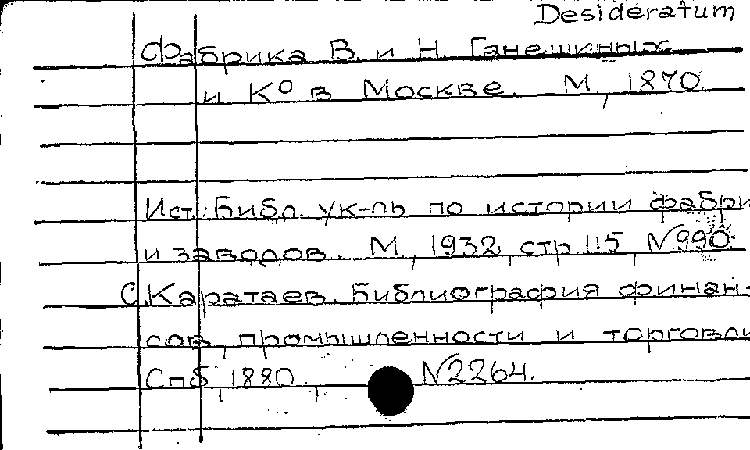 Desideratum
Фабрика В. и Н. Ганешиных
и К° в Москве. М., 1870.
Ист.: Библ. ук-ль по истории фабри
и заводов. М., 1932, стр. 115, №990.
С. Каратаев. Библиография финан-
сов, промышленности и торговли
Спб, 1880., №2264.